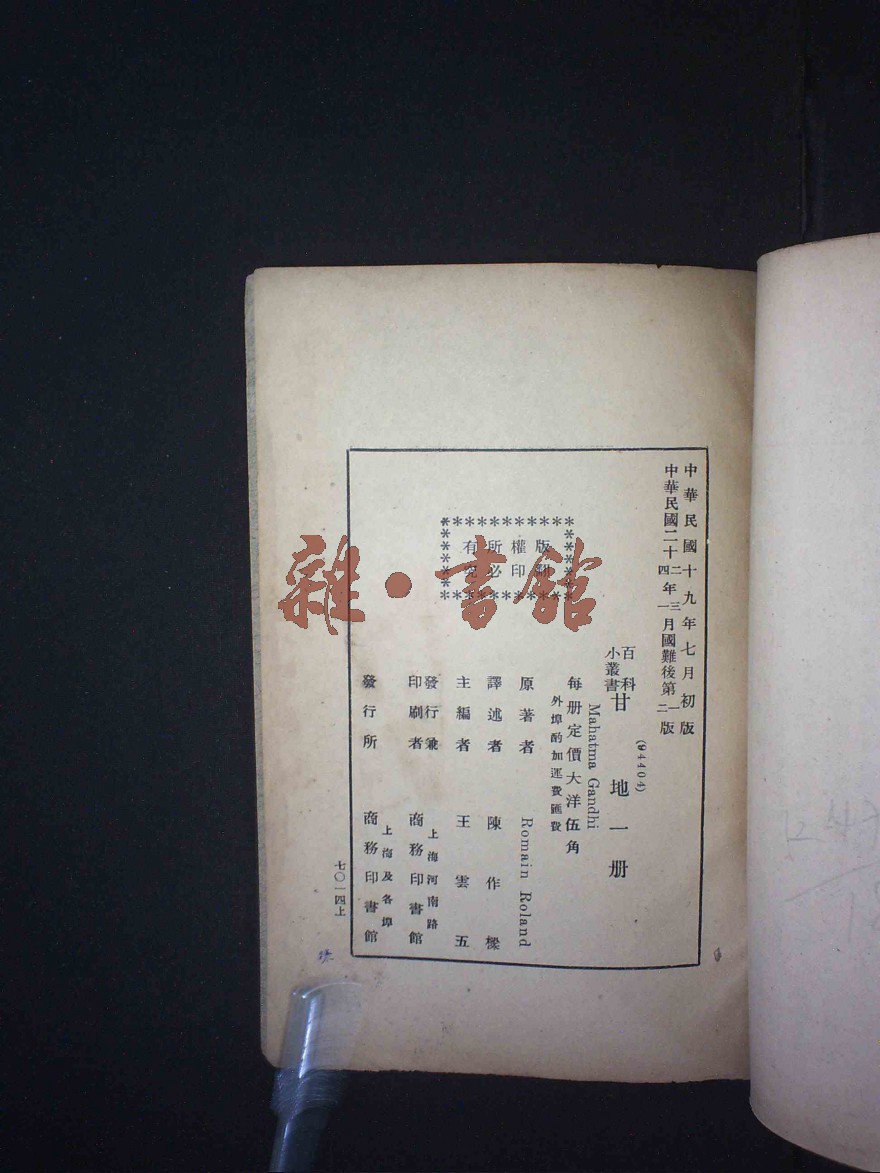 中華民國十九年七月初版
中華民國二十二年三月國難後第一版
中華民國二十四年一月國難後第二版
(94404)
百科小叢書
甘地一册
Mahatma Gandhi
每册定價大洋伍角
外埠酌加運費匯費
版權所有
翻印必究
原著者 Romain Roland
譯述者 陳作樑
主編者 王雲五
發行兼印刷者 上海河南路 商務印書館
發行所 上海及各埠 商務印書館
七〇一四上
雜·書館